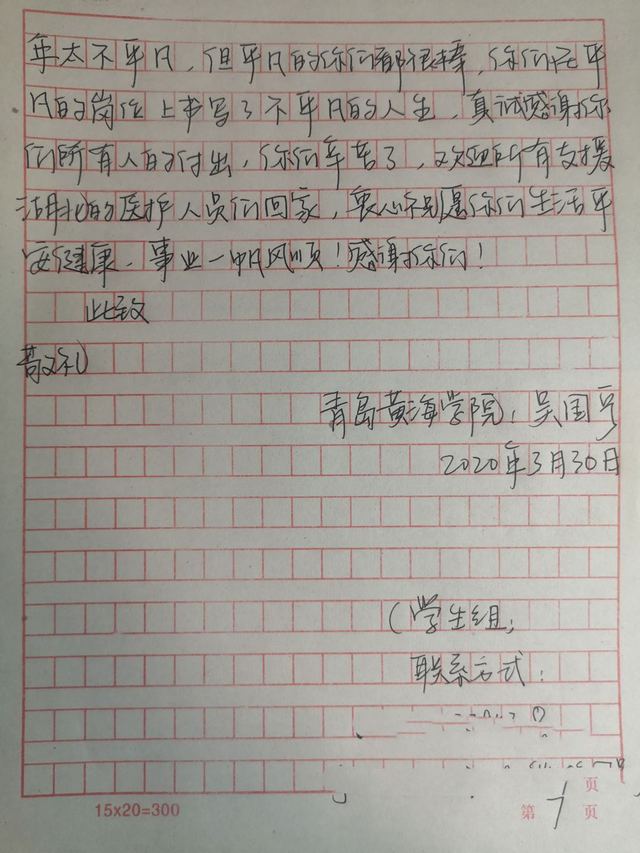 年太不平凡，但平凡的你们都很棒，你们在平
凡的岗位上书写了不平凡的人生，真诚感谢你
们所有人的付出，你们辛苦了，欢迎所有支援
湖北的医护人员们回家，衷心祝愿你们生活平
安健康、事业一帆风顺！感谢你们！
此致
敬礼
青岛黄海学院：吴国亨
2020年3月30日
（学生组；
联系方式：
15x20=300
第 7 页
页